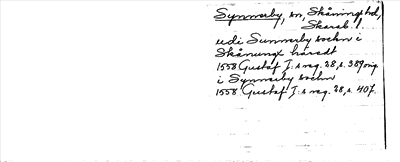 Synnerby, sn, Skånings hd,
Skarab. l.
udi Sunnerby sochn i
Skånungx häredt
1558 Gustaf I:s reg. 28, s. 389 orig
i Synnerby sochn
1558 Gustaf I:s reg. 28, s. 407.